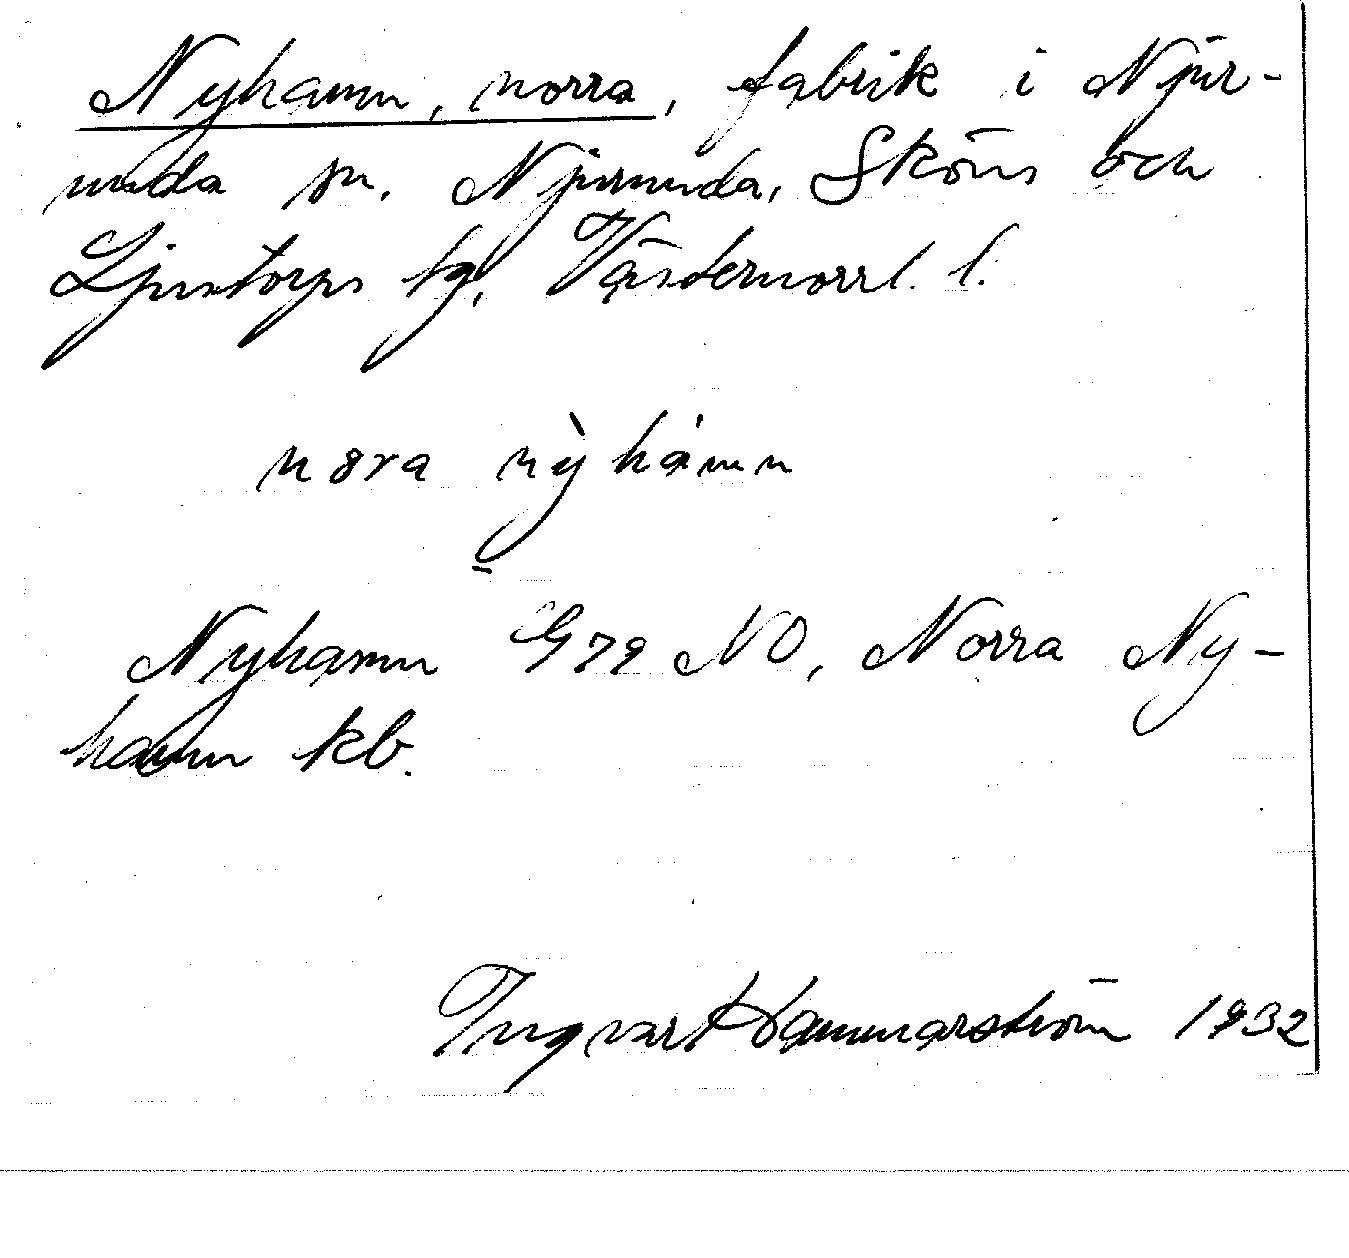 Nyhamn, norra, fabrik i Njur-
unda sn. Njurunda, Sköns och
Ljustorps tg. Västernorrl. l.
nora nỳhámn
Nyhamn G79 NO, Norra Ny-
hamn kb.
Ingvar Hammarström 1932